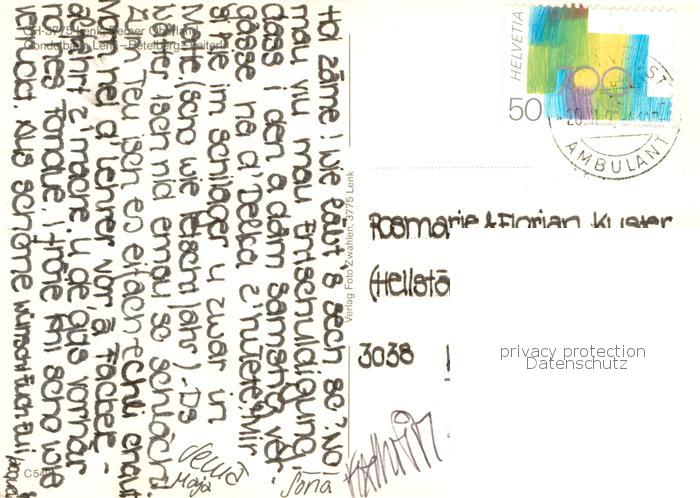 CH-3775 Lenk, Berner Oberland
Gondelbahn Lenk – Betelberg – Leiterli
Hoi zäme! Wie läuft's öich so? No
mau viu mau Entschuldigung
dass i den a däm Samstig ver-
gässe ha d'Della z'hüete. Mir
si hie im Schilager u zwar in
Matte (scho wie letscht Jahr). Ds
Wätter isch nid emau so schlächt.
Zum Teu isch es eifach echli
Vor hei d'Lehrer vor ä Fackel-
abfahrt z'mache u de aus vornär
no nes Tondue. I fröie mi scho wie
verruckt. Aus schöne wünscht Euch Eui
C 540
Verlag Foto Zwahlen, 3775 Lenk
HELVETIA
700
50
AMBULANT
Rosmarie & Florian Kuster
3038
privacy protection
Datenschutz
Maja